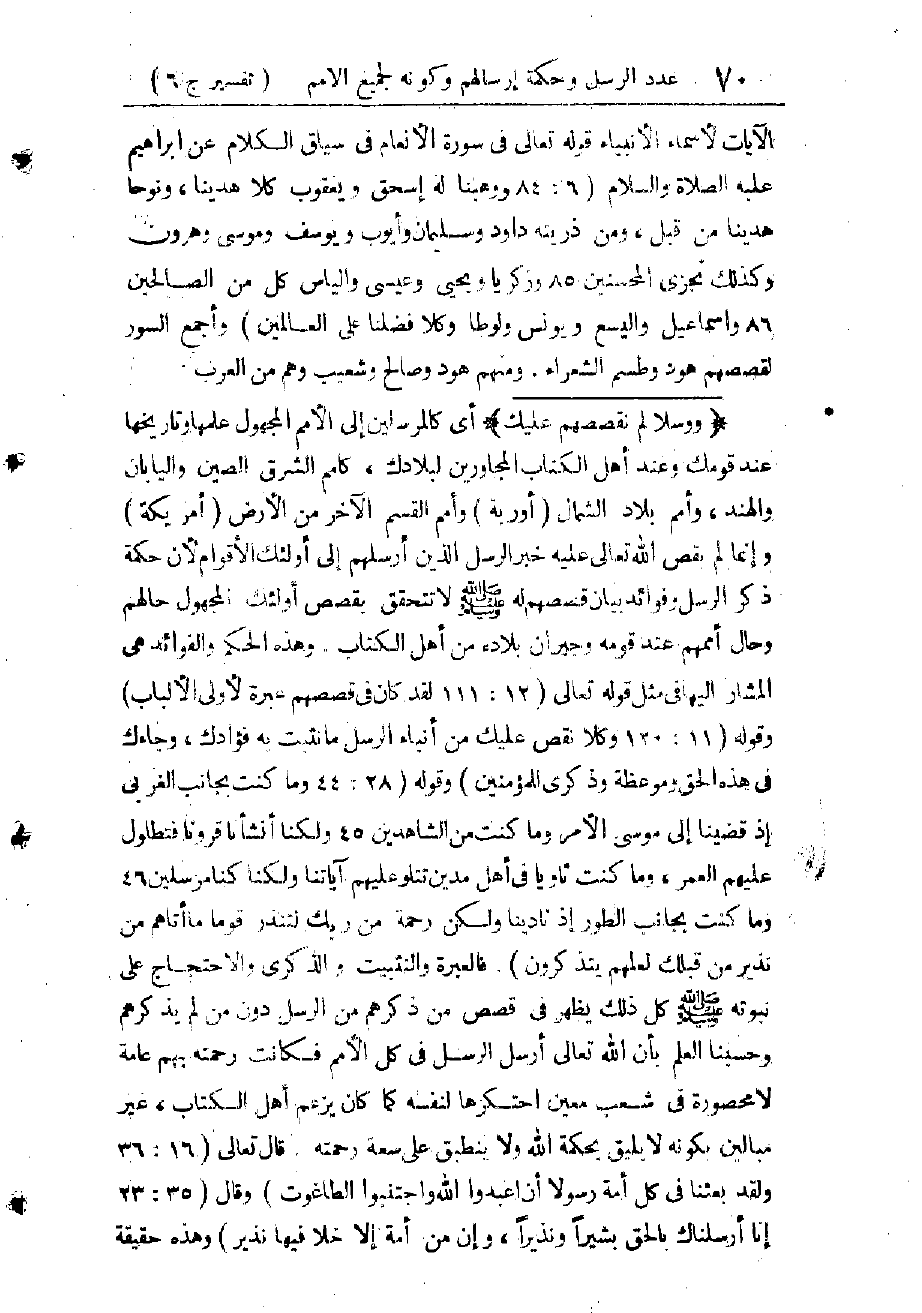 ٧٠ عدد الرسل وحكمة إرسالهم وكونه لجميع الامم ( تفسير ج ٦ )
الآيات لأسماء الأنبياء قوله تعالى فى سورة الأنعام فى سياق الكلام عن ابراهيم
عليه الصلاة والسلام ( ٦ : ٨٤ ووهبنا له إسحق ويعقوب كلا هدينا ، ونوحا
هدينا من قبل ، ومن ذريته داود وسليمان وأيوب ويوسف وموسى وهرون
وكذلك نجزى المحسنين ٨٥ وزكريا ويحيى وعيسى والياس كل من الصالحين
٨٦ واسماعيل واليسع ويونس ولوطا وكلا فضلنا على العالمين ) وأجمع السور
لقصصهم هود وطسم الشعراء . ومنهم هود وصالح وشعيب وهم من العرب
﴿ ورسلا لم نقصصهم عليك ﴾ أى كالمرسلين إلى الأمم المجهول علمها وتاريخها
عند قومك وعند أهل الكتاب المجاورين لبلادك ، كامم الشرق الصين واليابان
والهند ، وأمم بلاد الشمال ( أوربة ) وأمم القسم الآخر من الأرض ( أمريكة )
وإنما لم يقص الله تعالى عليه خبر الرسل الذين أرسلهم إلى أولئك الأقوام لأن حكمة
ذكر الرسل وفوائد بيان قصصهم له ﷺ لا تتحقق بقصص أولئك المجهول حالهم
وحال أممهم عند قومه وجيران بلاده من أهل الكتاب . وهذه الحكم والفوائد هى
المشار اليها فى مثل قوله تعالى ( ١٢ : ١١١ لقد كان فى قصصهم عبرة لأولى الألباب )
وقوله ( ١١ : ١٢٠ وكلا نقص عليك من أنباء الرسل ما نثبت به فؤادك ، وجاءك
فى هذه الحق وموعظة وذكرى للمؤمنين ) وقوله ( ٢٨ : ٤٤ وما كنت بجانب الغربى
إذ قضينا إلى موسى الأمر وما كنت من الشاهدين ٤٥ ولكنا أنشأنا قرونا فتطاول
عليهم العمر ، وما كنت ثاويا فى أهل مدين تتلو عليهم آياتنا ولكنا كنا مرسلين ٤٦
وما كنت بجانب الطور إذ نادينا ولكن رحمة من ربك لتنذر قوما ما أتاهم من
نذير من قبلك لعلهم يتذكرون ) . فالعبرة والتثبيت والذكرى والاحتجاج على
نبوته ﷺ كل ذلك يظهر فى قصص من ذكرهم من الرسل دون من لم يذكرهم
وحسبنا العلم بأن الله تعالى أرسل الرسل فى كل الأمم فكانت رحمته بهم عامة
لا محصورة فى شعب معين احتكرها لنفسه كما كان يزعم أهل الكتاب ، غير
مبالين بكونه لا يليق بحكمة الله ولا ينطبق على سعة رحمته . قال تعالى ( ١٦ : ٣٦
ولقد بعثنا فى كل أمة رسولا أن اعبدوا الله واجتنبوا الطاغوت ) وقال ( ٣٥ : ٢٣
إنا أرسلناك بالحق بشيراً ونذيراً ، وإن من أمة إلا خلا فيها نذير ) وهذه حقيقة